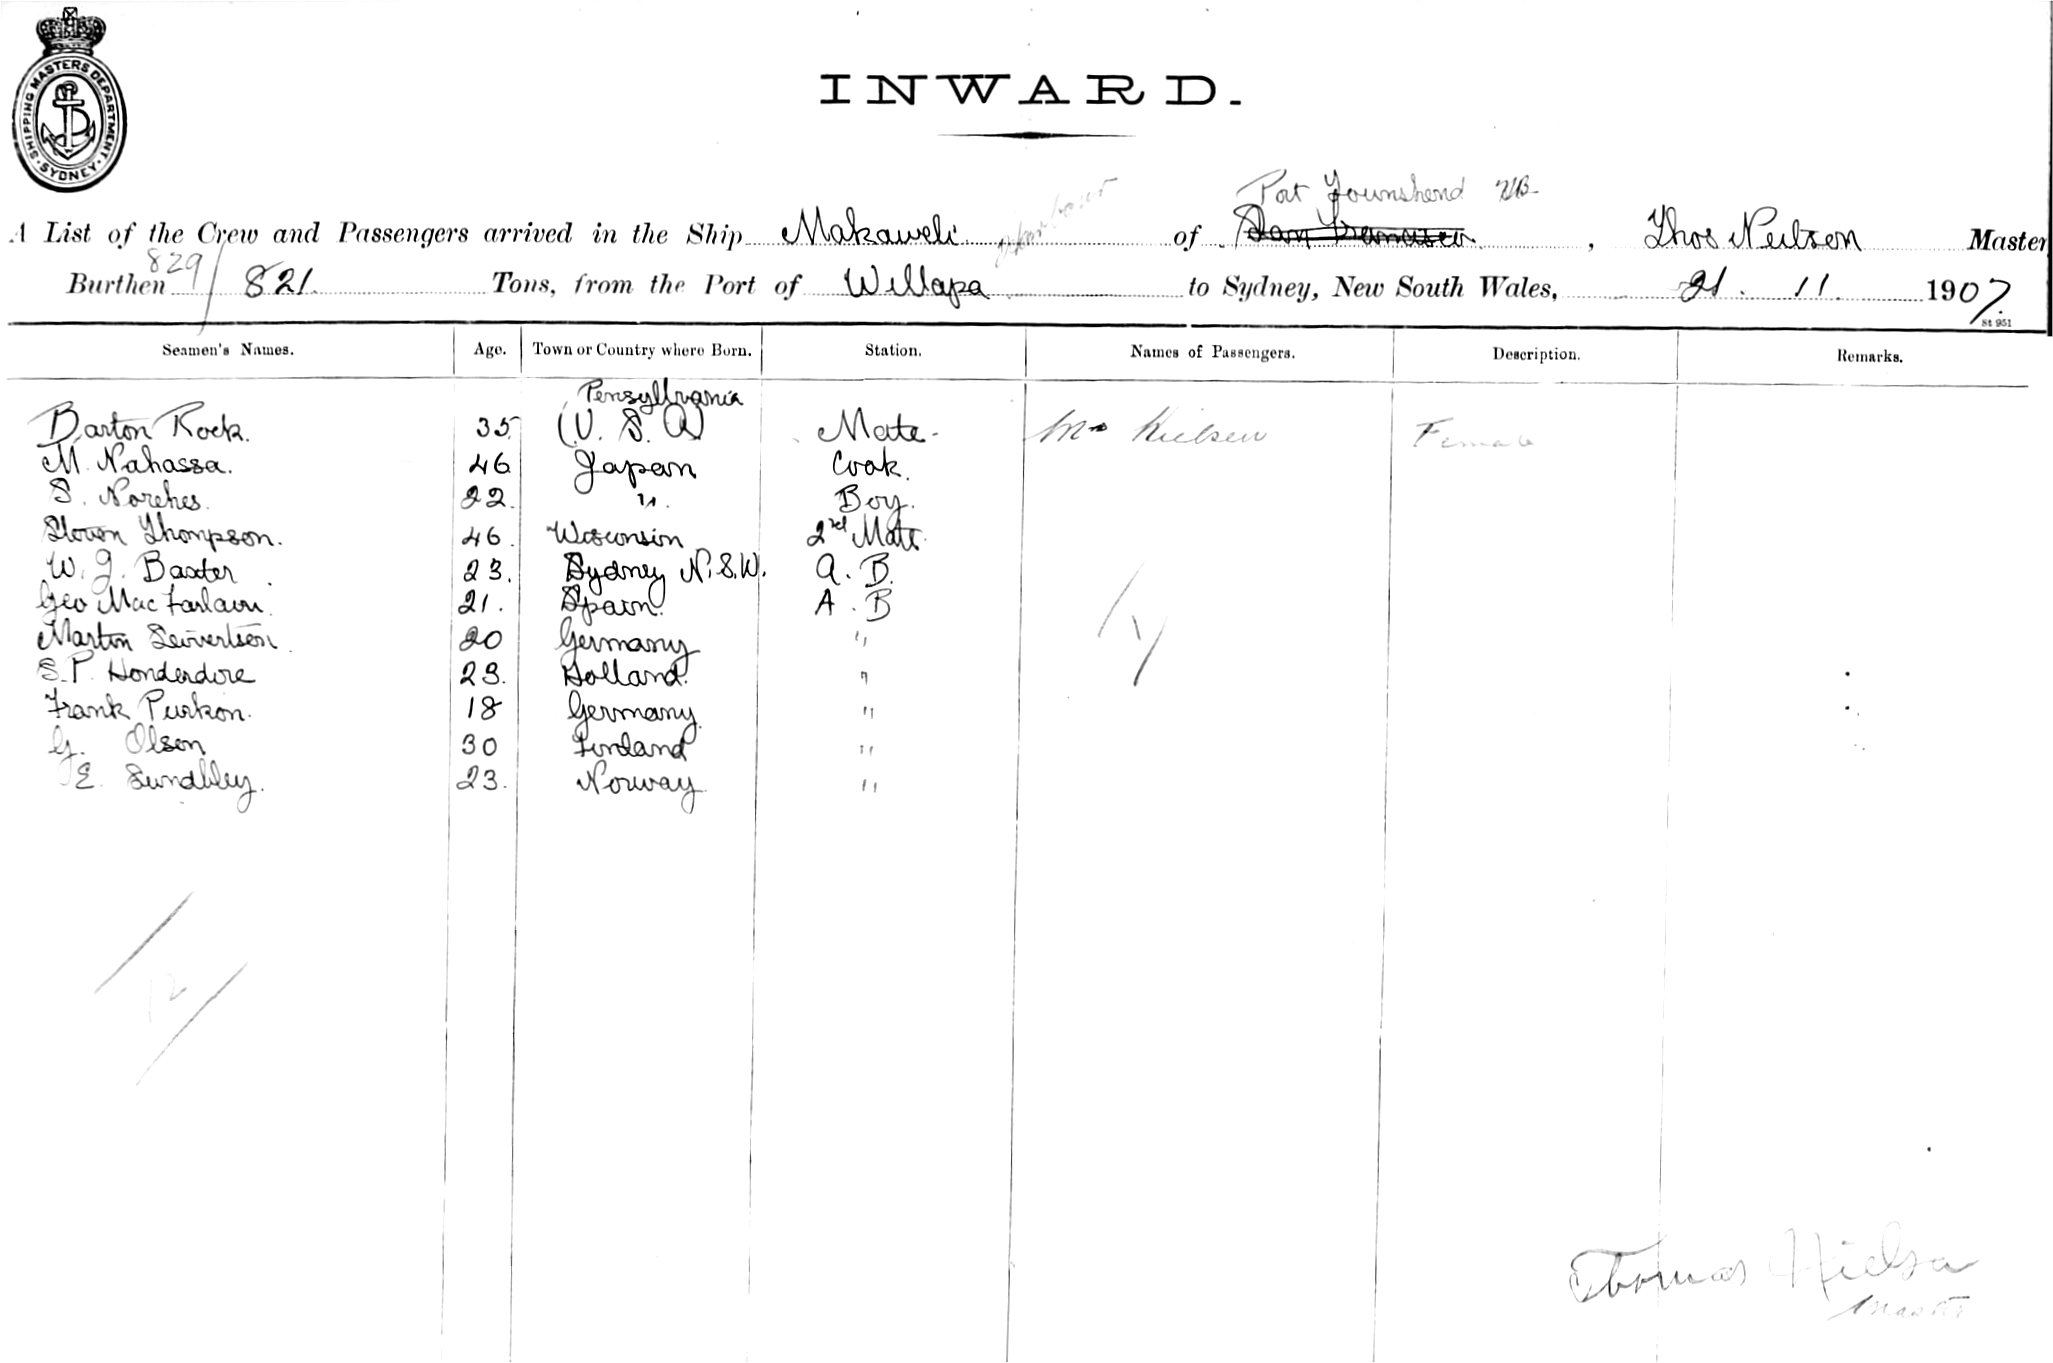 SHIPPING MASTERS DEPARTMENT. SYDNEY
INWARD.
Port Townshend
A List of the Crew and Passengers arrived in the Ship Makaweli of San Francisco, Thos Neilson Master
829
Burthen 821 Tons, from the Port of Willapa to Sydney, New South Wales, 21. 11. 1907.
St 951
Seamen's Names. Age. Town or Country where Born. Station. Names of Passengers. Description. Remarks.
Pensyllvania
Barton Rock. 35 (U. S. A) Mate- Mrs Nielsen Female
M. Nahassa. 46 Japan Cook.
S. Norehes. 22. " Boy.
Steven Thompson. 46. Wisconsin 2nd Mate.
W. J. Baxter. 23. Sydney N.S.W. A. B.
Geo MacFarlaun. 21. Spain. A. B
Martin Seivertsen. 20 Germany "
S.P. Honderdore 23. Holland. "
Frank Purkon. 18 Germany. "
G. Olson 30 Finland "
E. Sundbley. 23. Norway "
1
12
Thomas Nielsen
Master